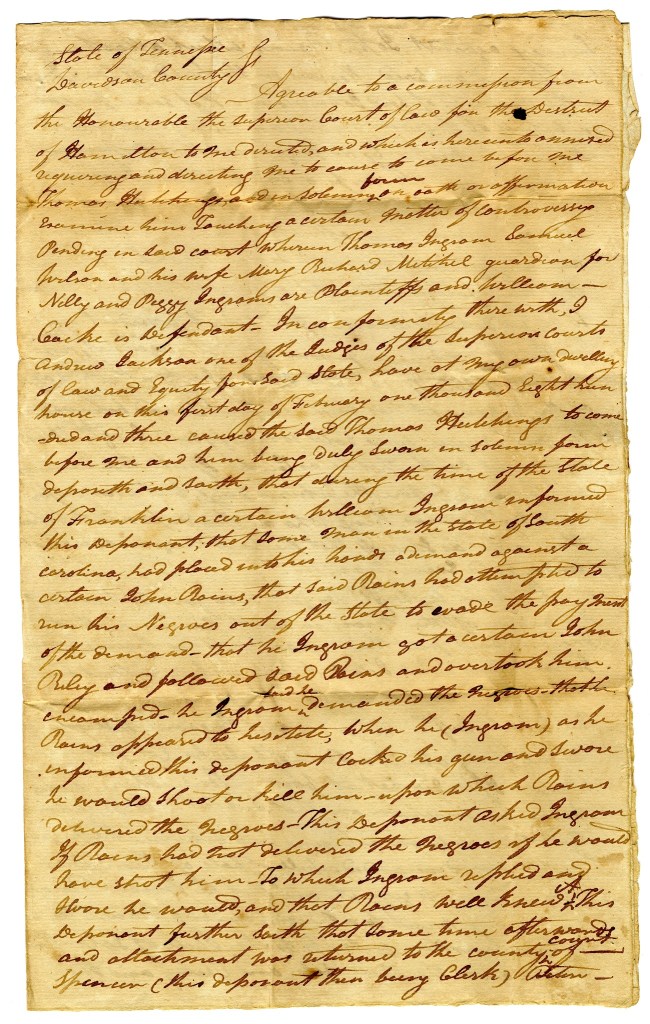 State of Tennessee
Davidson County Ss
Agreable to a commission from
the Honourable the Superior Court of law for the District
of Hamilton to me directed, and which is hereunto annexed
requiring and directing me to cause to come before me
Thomas Hutchings and in Solemn form on oath or affirmation
Examine him Touching a certain matter of Controversy
Pending in said court wherein Thomas Ingram Samuel
Wilson and his wife Mary Richard Mitchel guardian for
Nelly and Peggy Ingrams are Plaintiffs and William -
Cocke is Defendant - In conformity there with, I
Andrew Jackson one of the Judges of the Superior Courts
of law and Equity for said State, have at my own dwelling
house on this first day of February one thousand Eight hun
-dred and three caused the said Thomas Hutchings to come
before me and him being duly Sworn in Solemn form
deposeth and saith, that during the time of the State
of Franklin a certain William Ingram informed
this Deponant, that some man in the State of South
carolina, had placed into his hands a demand against a
certain John Rains, that said Rains had attempted to
run his Negroes out of the State to evade the payment
of the demand - that he Ingram got a certain John
Riley and followed said Rains and overtook him
encamped - he Ingram demanded the Negroes - that he
Rains appeared to hesitate, when he (Ingram) as he
informed this deponant Cocked his gun and Swore
he would Shoot or kill him - upon which Rains
delivered the Negroes - This Deponant asked Ingram
If Rains had not delivered the Negroes if he would
have shot him - To which Ingram replied and
Swore he would, and that Rains well knew it. This
Deponant further Saith that some time afterwards
and attachment was returned to the county court of
Spencer (this deponant then being Clerk)